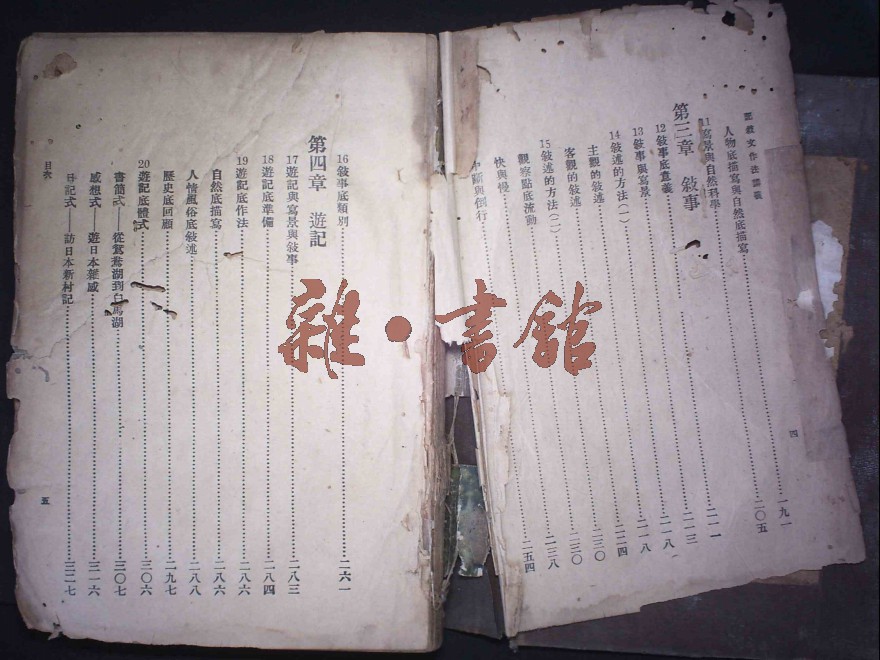 記敍文作法講義
人物底描寫與自然底描寫……一九一
11寫景與自然科學……二〇五
第三章 敍事
12敍事底意義……二一一
13敍事與寫景……二一三
14敍述的方法(一)……二一八
主觀的敍述……二一八
客觀的敍述……二二四
15敍述的方法(二)……二三〇
觀察點底流動……二三〇
快與慢……二三八
中斷與倒行……二五四
四
16敍事底類別……二六一
第四章 遊記
17遊記與寫景與敍事……二八三
18遊記底準備……二八四
19遊記底作法……二八六
自然底描寫……二八六
人情風俗底敍述……二八八
歷史底回顧……二九七
20遊記底體式……三〇六
書簡式—從鴛鴦湖到白馬湖……三〇七
感想式—遊日本雜感……三一六
日記式—訪日本新村記……三二七
目次
五
雜·書館